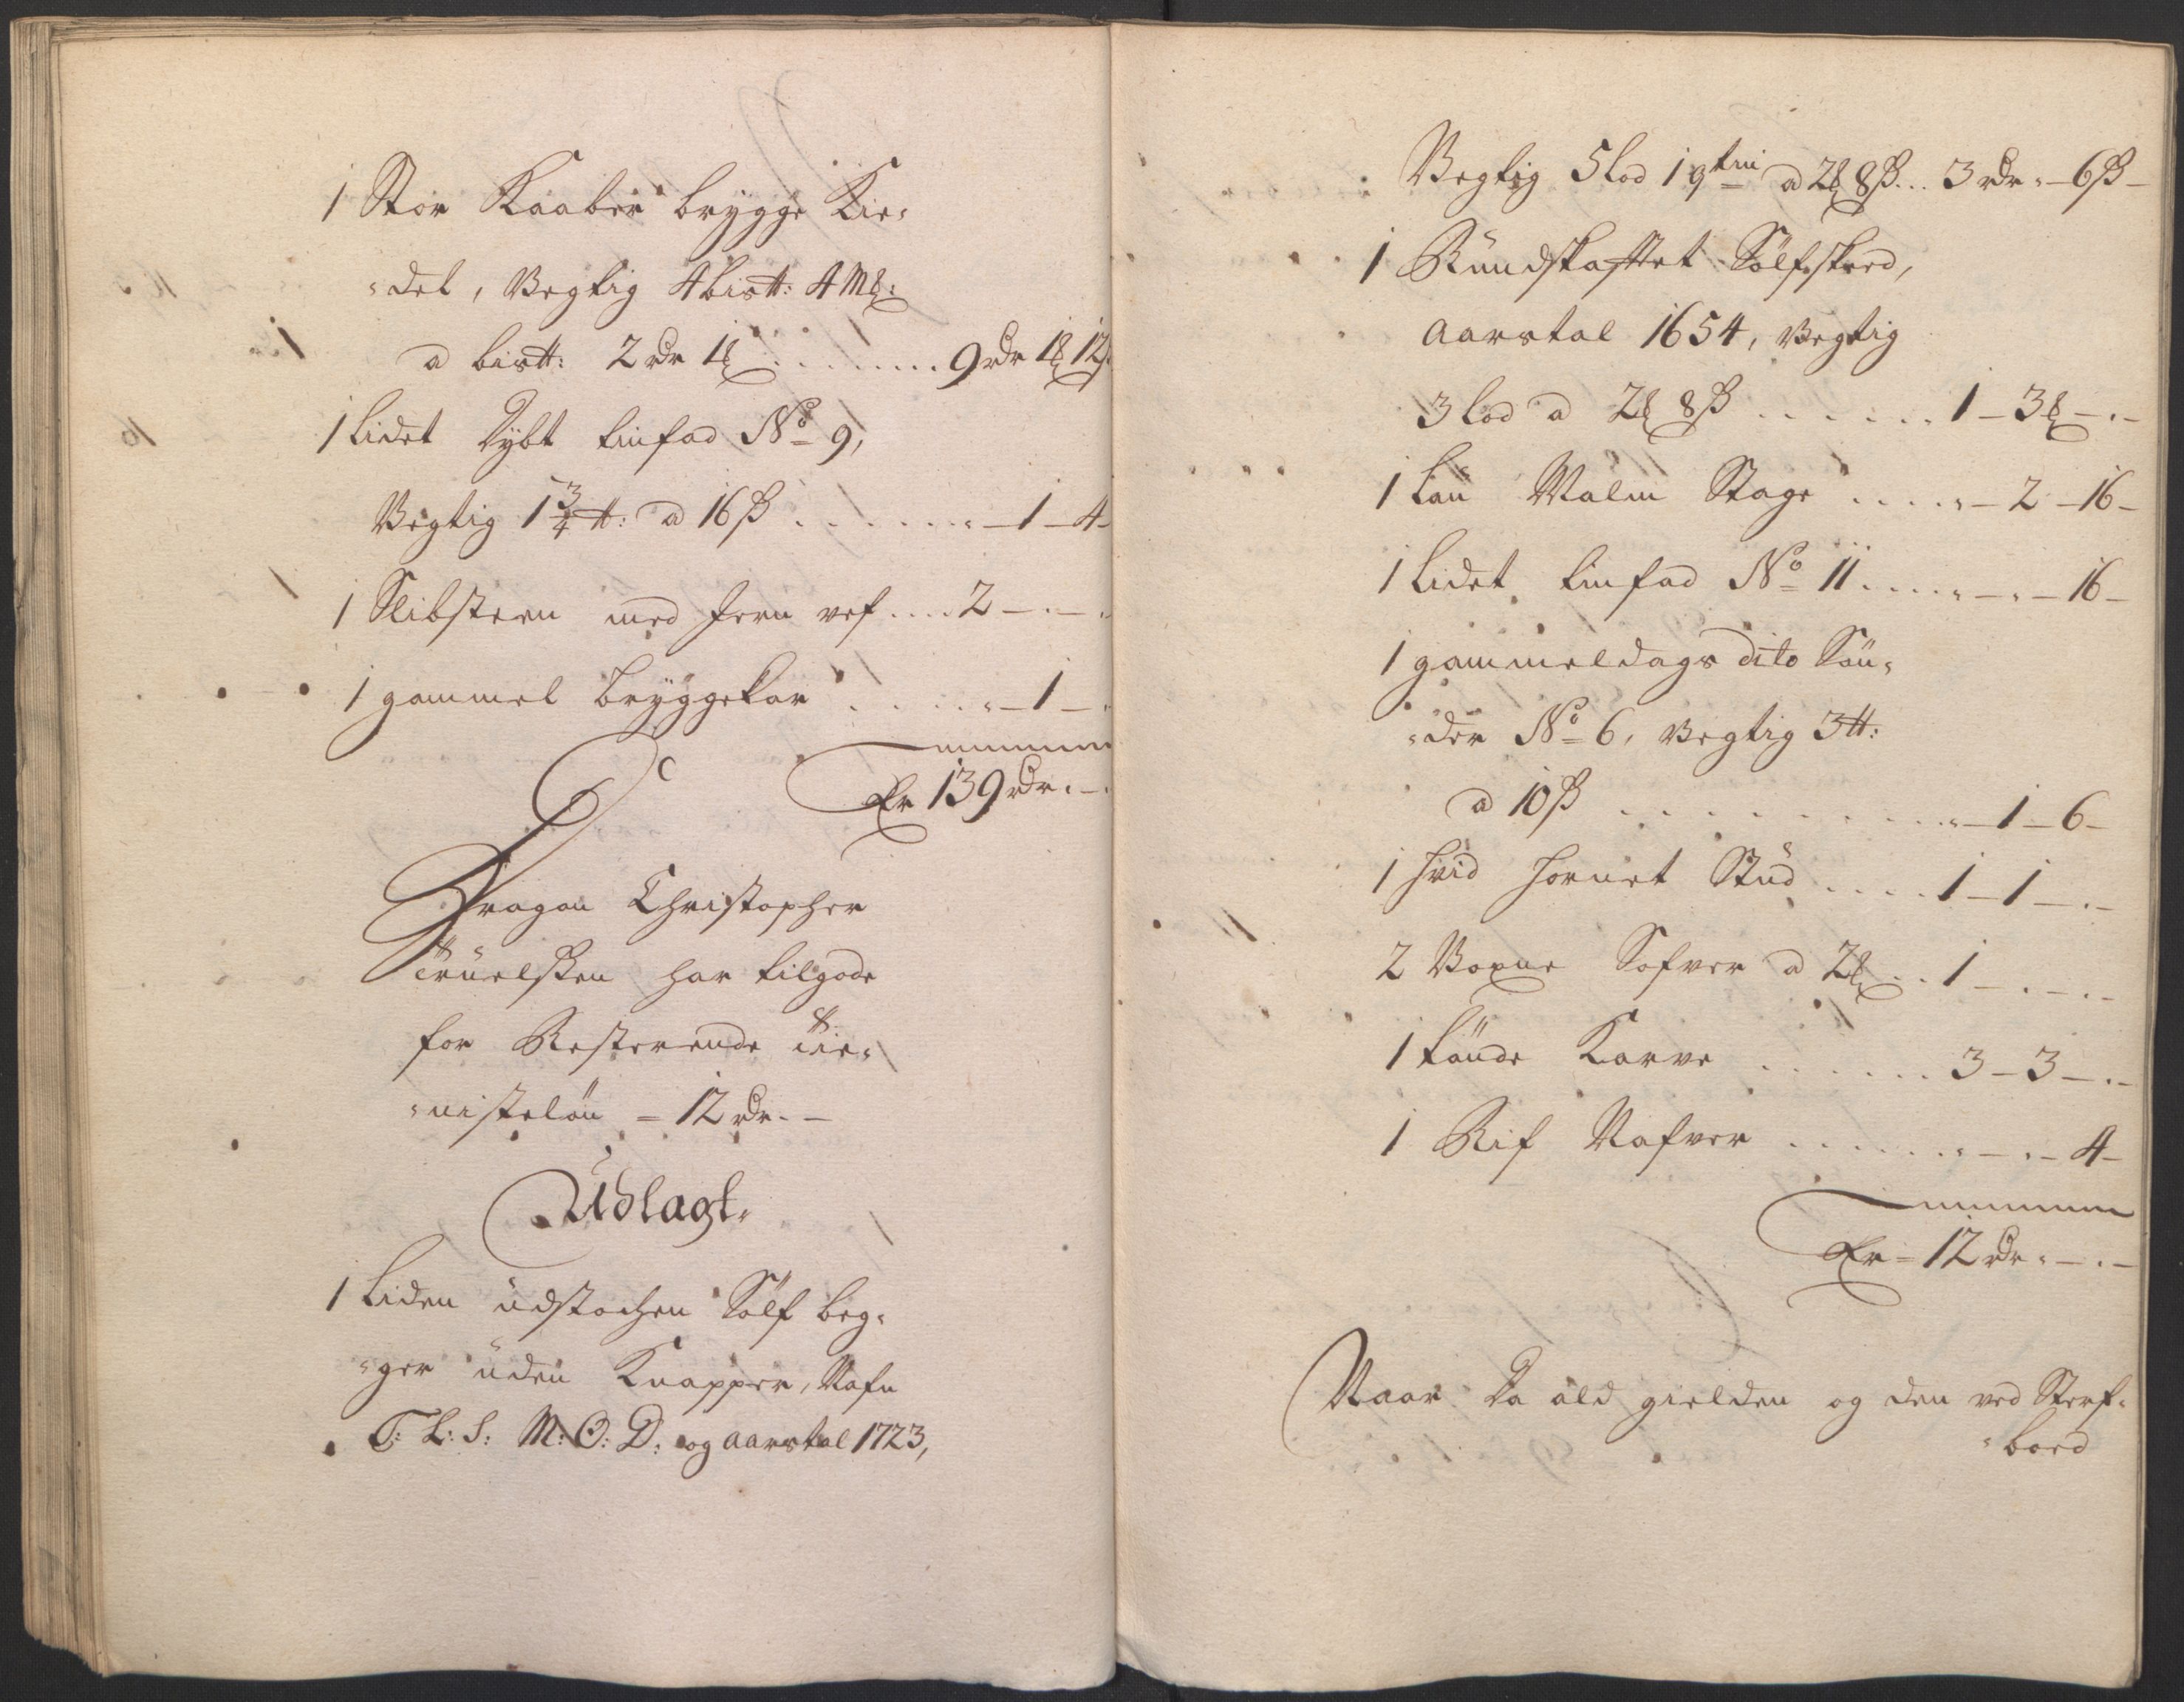 1 Stor Kaaber brygge Kie-
-del, Vegtig 4 bis℔: 4 M𝔏:
a bis℔: 2 rdr 1𝔏 ........ 9 rdr 1𝔏 12ß
1 Lidet dybt tinfad No 9,
Vegtig 1 3/4 ℔: a 16 ß ....... „ – 1 – 4 –
1 Slibsteen med Jern vef .... 2 – „ – „
1 gammel bryggekar ..... „ – 1 – „
Er 139 rdr. – „
Dragon Christopher
Truelssen har tilgode
for Resterende tie-
-nisteløn = 12 rdr. –
Udlagt.
1 Liden udstochen Sølf beg-
-ger uden Knapper, Nafn
T: L: S: M: O: D: og aarstal 1723,
Vegtig 5 Lod 1 qtin a 2𝔏 8ß... 3 rdr „ – 6ß –
1 Rundskaftet Sølfskeed,
aarstal 1654, Vegtig
3 Lod a 2𝔏 8ß ...... 1 – 3𝔏 – „ –
1 Lau Malm Stage .... „ – 2 – 16 –
1 Lidet tinfad No 11 .... „ – „ – 16 –
1 gammeldags dito Søn-
-der No 6, Vegtig 3 ℔:
a 10 ß .......... „ – 1 – 6 –
1 hvid hornet Stud .... 1 – 1 – „ –
2 Voxne Sofver a 2𝔏 .. 1 – „ – „ –
1 tønde Karve ...... 3 – 3 – „ –
1 Rif Nafver ...... „ – „ – 4 –
Er = 12 rdr „ – „ –
Naar da all gielden og den ved Sterf-
-boed